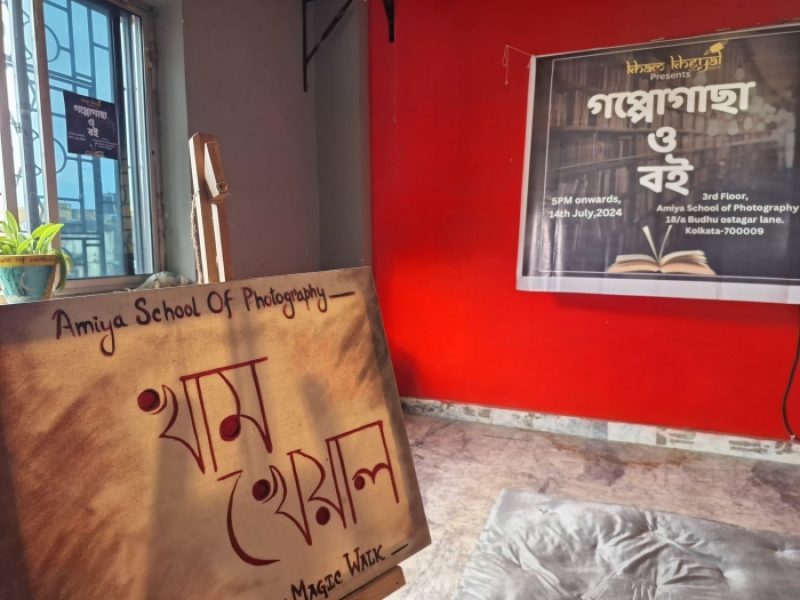 Amiya School Of Photography
খাম
খেয়াল
Magic Walk
kham kheyal
Presents
গপ্পোগাছা
ও
বই
5PM onwards,
14th July,2024
3rd Floor,
Amiya School of Photography
18/a Budhu ostagar lane.
Kolkata-700009
গপ্পোগাছা
ও
বই